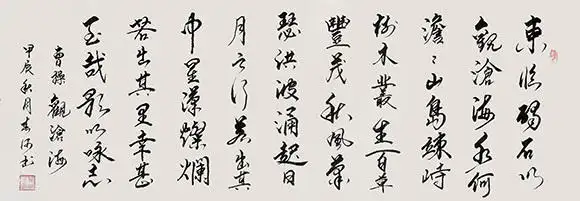 東臨碣石以
觀滄海水何
澹々山島竦峙
樹木叢生百草
豐茂秋風蕭
瑟洪波涌起日
月之行若出其
中星漢燦爛
若出其里幸甚
至哉歌以咏志
曹操觀滄海
甲辰秋月书